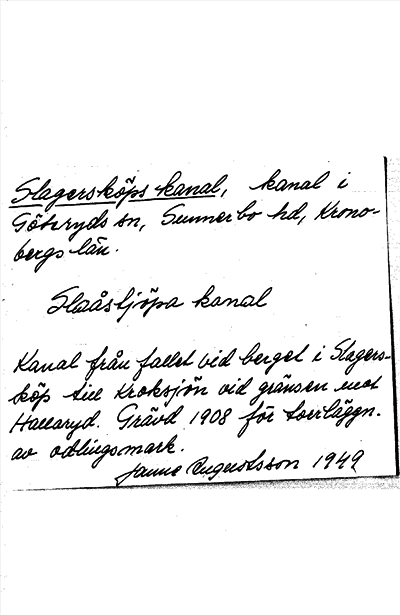 Slagersköps kanal, kanal i
Göteryds sn, Sunnerbo hd, Krono-
bergs län.
Slaåsljöpa kanal
Kanal från fallet vid berget i Slagers-
köp till Kroksjön vid gränsen mot
Hallaryd. Grävd 1908 för torrläggn.
av odlingsmark.
Janne Augustsson 1949